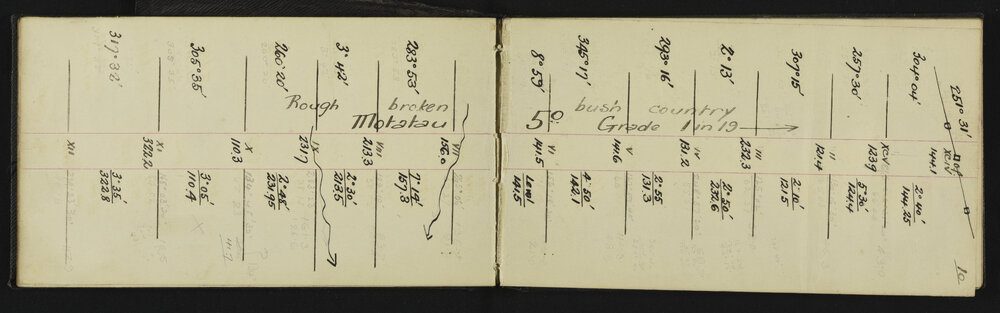 10
251° 31'
□ of XCIV
144.1 2° 40'
144.25
304° 04'
XCV
123.9 5° 30'
124.4
257° 30'
II
121.4 2° 10'
121.5
307° 15'
III
232.3 2° 50'
232.6
2° 13'
IV
131.2 2° 55'
131.3
293° 16'
V
141.6 4° 50'
142.1
345° 17'
VI
141.5 Level
141.5
8° 59'
Rough broken bush country
Motatau 5° Grade 1 in 19
VII
156.0 7° 14'
157.3
283° 53'
VIII
213.3 2° 30'
213.5
3° 42'
IX
231.7 2° 48'
231.95
260° 20'
X
110.3 3° 05'
110.4
305° 35'
XI
322.2 3° 35'
322.8
317° 32'
XII